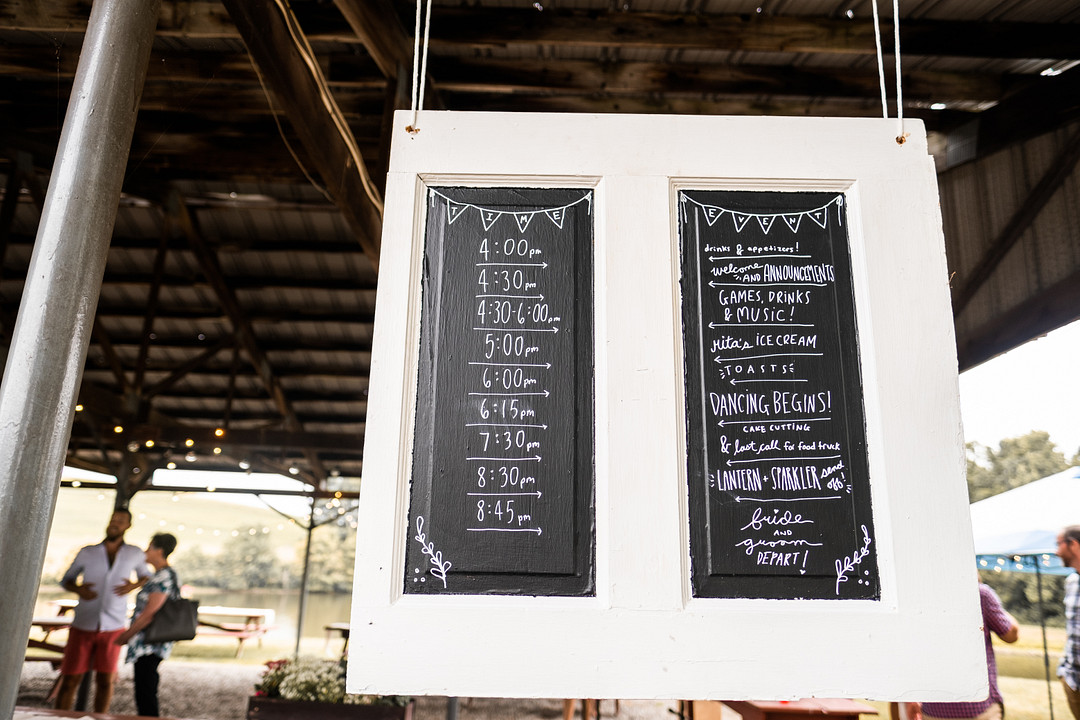 TIME
4:00pm
4:30pm
4:30-6:00pm
5:00pm
6:00pm
6:15pm
7:30pm
8:30pm
8:45pm
EVENT
drinks & appetizers!
welcome AND ANNOUNCEMENTS
GAMES, DRINKS
& MUSIC!
Rita's ICE CREAM
TOASTS
DANCING BEGINS!
CAKE CUTTING
& last call for food truck
LANTERN + SPARKLER send off!
bride
AND
groom
DEPART!